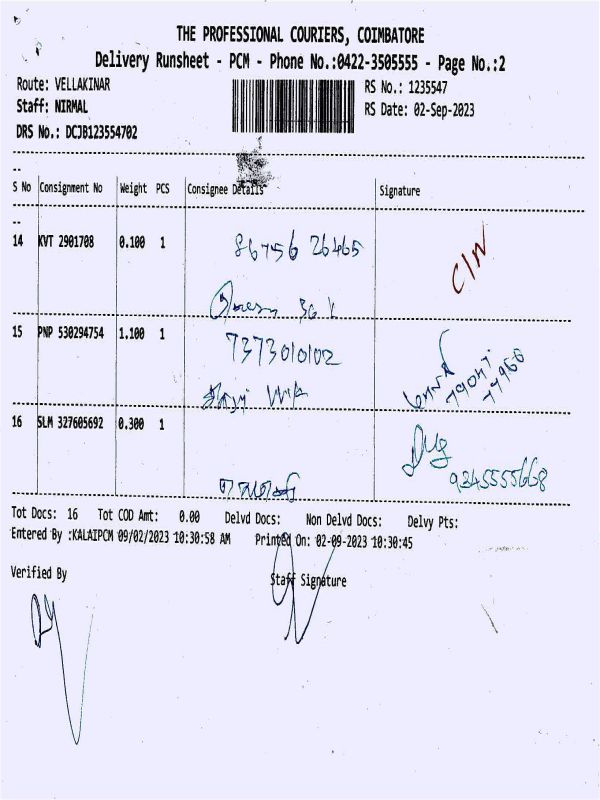 THE PROFESSIONAL COURIERS, COIMBATORE
Delivery Runsheet - PCM - Phone No.:0422-3505555 - Page No.:2
Route: VELLAKINAR
RS No.: 1235547
Staff: NIRMAL
RS Date: 02-Sep-2023
DRS No.: DCJB123554702
S No Consignment No Weight PCS Consignee Details Signature
14 KVT 2901708 0.100 1 86756 26465 C/N
15 PNP 530294754 1.100 1 7373010102
16 SLM 327605692 0.300 1
9345555668
Tot Docs: 16 Tot COD Amt: 0.00 Delvd Docs: Non Delvd Docs: Delvy Pts:
Entered By :KALAIPCM 09/02/2023 10:30:58 AM Printed On: 02-09-2023 10:30:45
Verified By Staff Signature